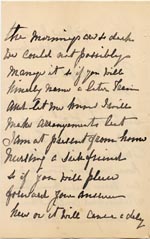 the Mornings are so dark
we could not possibly
Manage it so if you will
kindly name a later Train
and let me know I will
make arrangements but
I am at present from home
Nursing a sick friend
so if you will please
forward your answer
Here or it will cause a delay